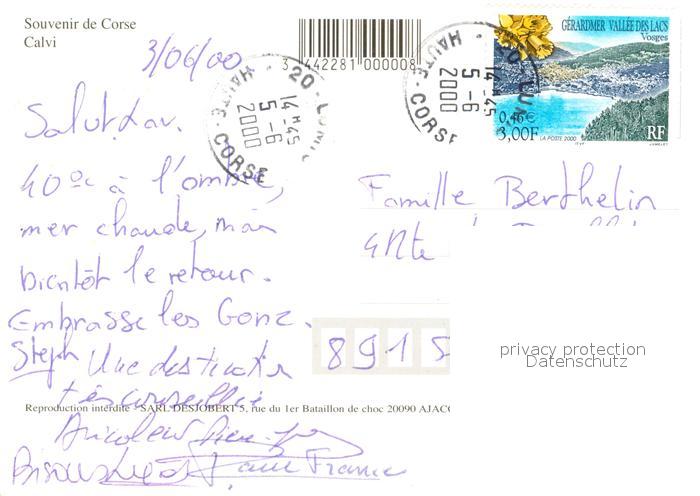 Souvenir de Corse
Calvi
3/06/00
3 442281 000008
20 - LUMIO
14 H 45
5 - 6
2000
HAUTE - CORSE
14 H 45
5 - 6
2000
HAUTE - CORSE
GÉRARDMER VALLÉE DES LACS
Vosges
0,46€
3,00F
LA POSTE 2000
RF
ITVF
JUMELET
Salut
40°c à l'ombre,
mer chaude, mais
bientôt le retour.
Embrasse les Gonz.
Steph Une destination
très conseillée
Bisous
Famille Berthelin
4 Rte
8915
privacy protection
Datenschutz
Reproduction interdite - SARL DESJOBERT 5, rue du 1er Bataillon de choc 20090 AJACC